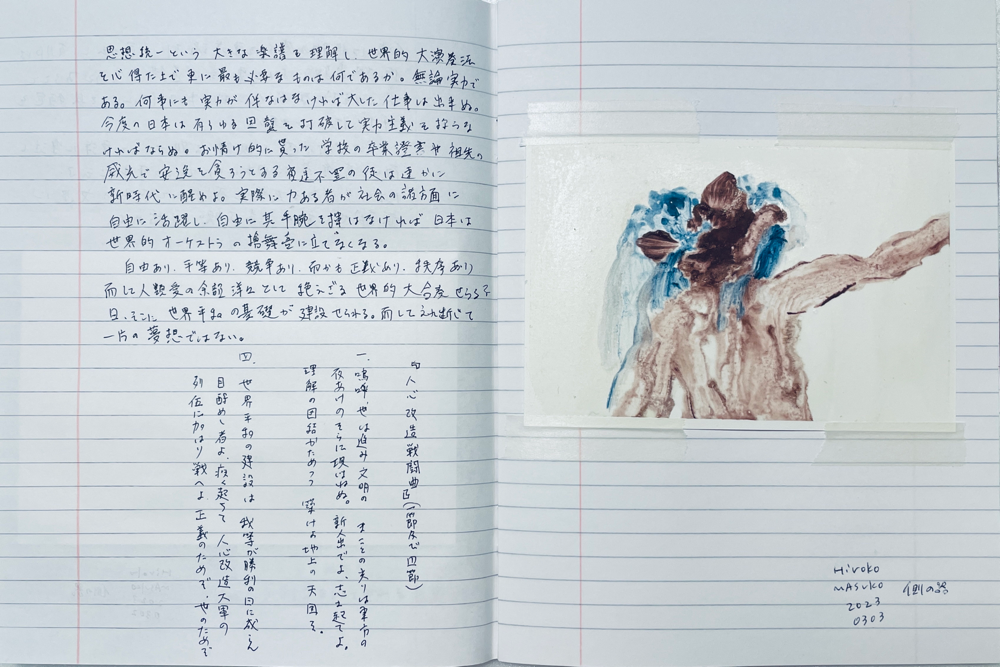 思想統一という大きな楽譜を理解し、世界的大演奏法
を心得た上で更に最も必要なものは何であるか。無論実力で
ある。何事にも実力が伴なはなければ大した仕事は出来ぬ。
今度の日本は有らゆる因襲を打破して実力主義を採らな
ければならぬ。お情け的に貰った学校の卒業證書や祖先の
威光で安逸を貪ろうとする
新時代に醒めよ。実際に力ある者が社会の諸方面に
自由に活躍し、自由に其手腕を揮はなければ日本は
世界的オーケストラの檜舞台に立てなくなる。
自由あり、平等あり、競争あり、而かも正義あり、秩序あり
而して人類愛の余韻洋々として絶えざる世界的大合奏せらるゝ
日、そこに世界平和の基礎が建設せられる。而してえれ断じて
一片の夢想ではない。
『人心改造戦闘曲』(一節及で四節)
一、嗚呼、世は進み文明の まことの光りは東方の
夜あけのそらに現はれぬ。 新人出でよ、志士起てよ。
理解の団結かためつゝ 築け此地上の天国を。
四、世界平和の建設は 我等が勝利の日に成らん
目醒めし者よ、疾く起ちて 人心改造大軍の
列伍に加はり戦へよ 正義のためぞ、世のためぞ
Hiroko
MASUKO
2023
0303